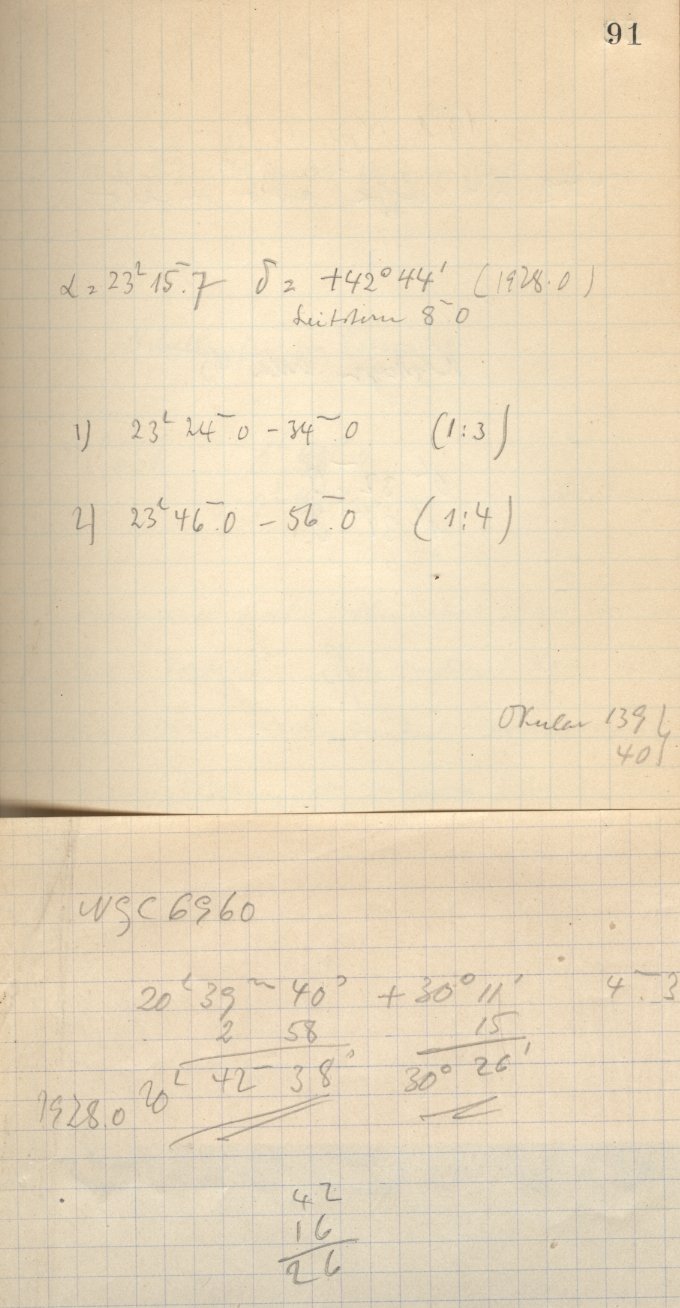 91
α = 23ʰ 15ᵐ.7 δ = +42° 44' (1928.0)
Leitstern 8ᵐ.0
1) 23ʰ 24ᵐ.0 - 34ᵐ.0 (1:3)
2) 23ʰ 46ᵐ.0 - 56ᵐ.0 (1:4)
Okular 139
40
NGC 6960
20ʰ 39ᵐ 40ˢ + 30° 11' 4ᵐ.3
2 58 15
1928.0 20ʰ 42ᵐ 38ˢ 30° 26'
42
16
26